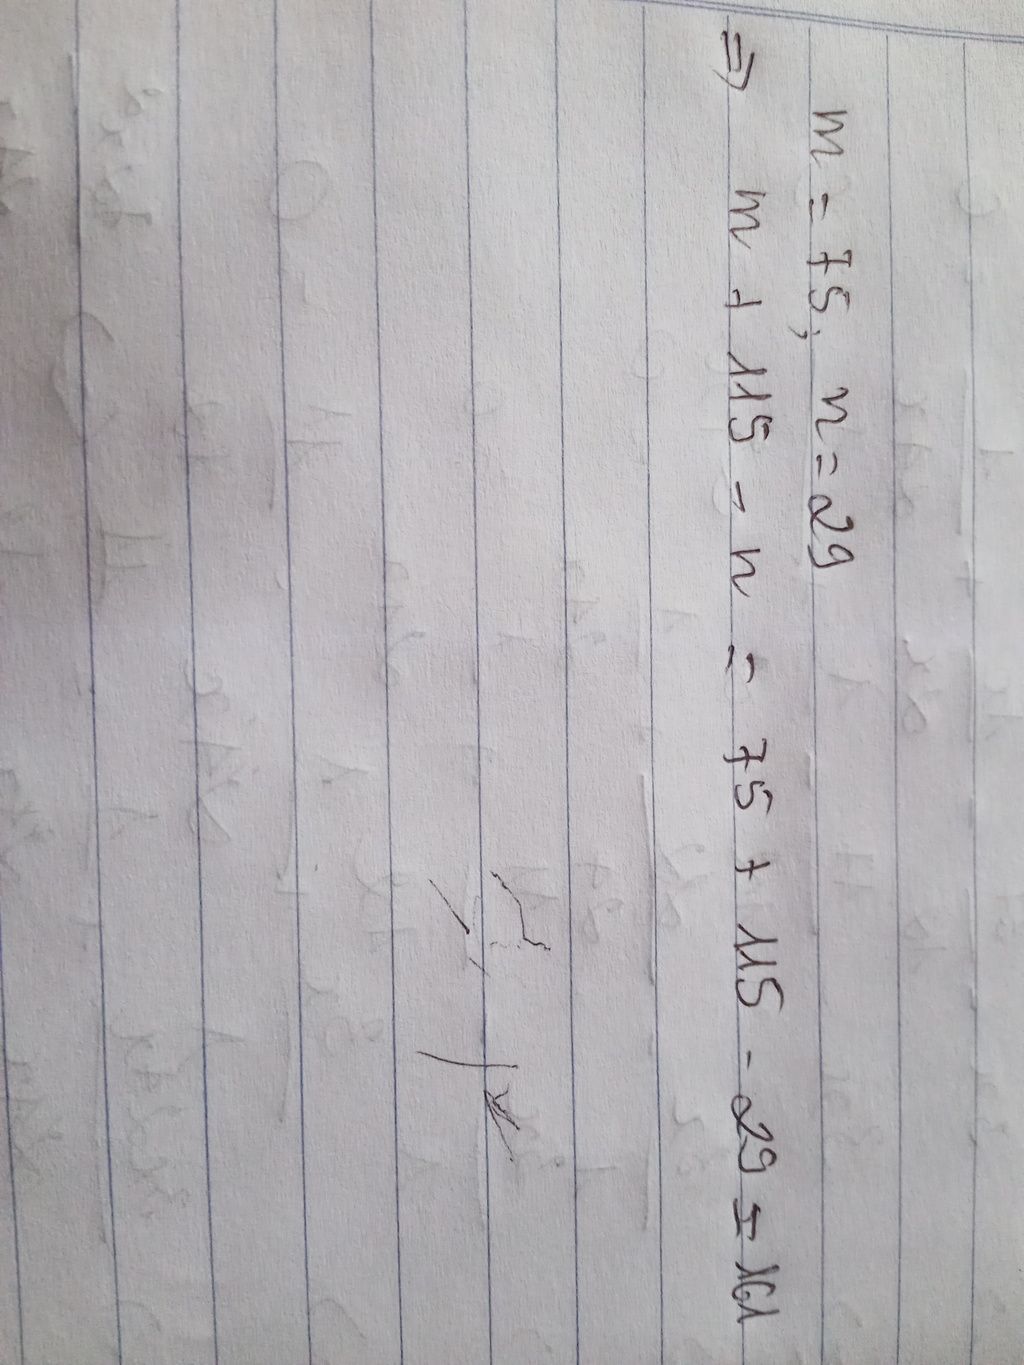 m = 75, n = 29
⇒ m + 115 - n = 75 + 115 - 29 = 161